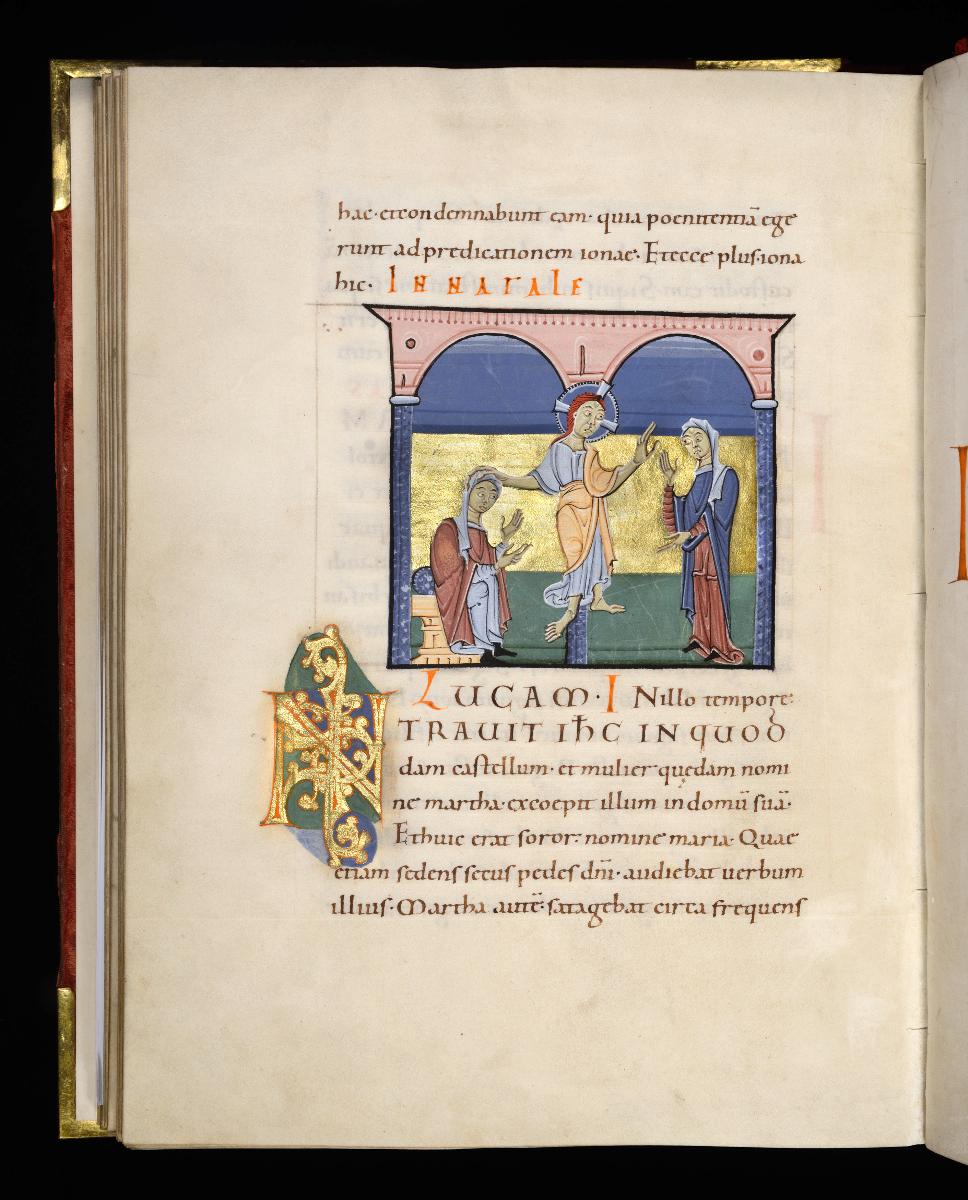 hac· etcondemnabunt eam· quia poenitentiā ege
runt ad predicationem ionae· Et ecce plus·iona
hic· INNATALE
LUCAM· IN illo tempore·
INTRAVIT ihc IN QUOD
dam castellum· et mulier quędam nomi
ne martha· excoepit illum in domū suā·
Et huic erat soror· nomine maria· Quae
etiam sedens secus pedes dn̄i· audiebat uerbum
illius· Martha autē· satagebat circa frequens